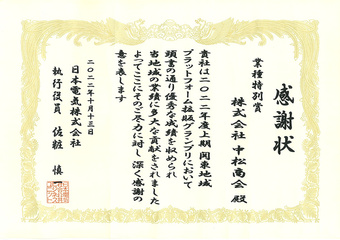 感謝状
業種特別賞
株式会社 中松商会 殿
貴社は二〇二二年度上期 関東地域
プラットフォーム拡販グランプリにおいて
頭書の通り優秀な成績を収められ
当地域の業績に多大な貢献をされました
よってここにそのご尽力に対し 深く感謝の
意を表します
二〇二二年十月十三日
日本電気株式会社
執行役員 佐粧 慎